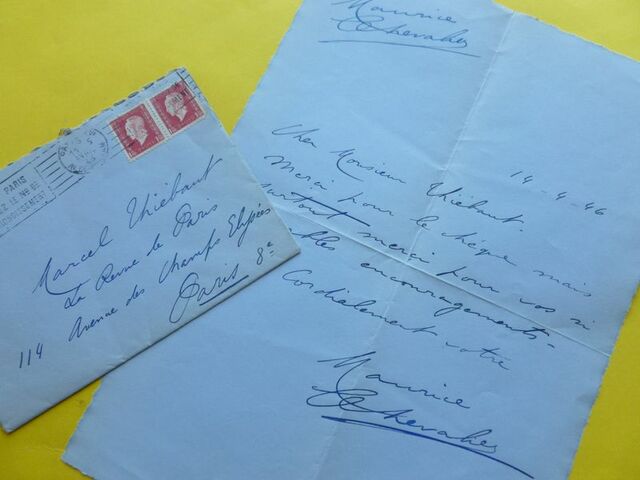 Marcel Thiébaut
La Revue de Paris
114 Avenue des Champs Elysées
Paris 8e
PARIS
Maurice
Chevalier
14-4-46
Cher Monsieur Thiébaut.
Merci pour le chèque mais
surtout merci pour vos si
encouragements-
Cordialement votre
Maurice
Chevalier